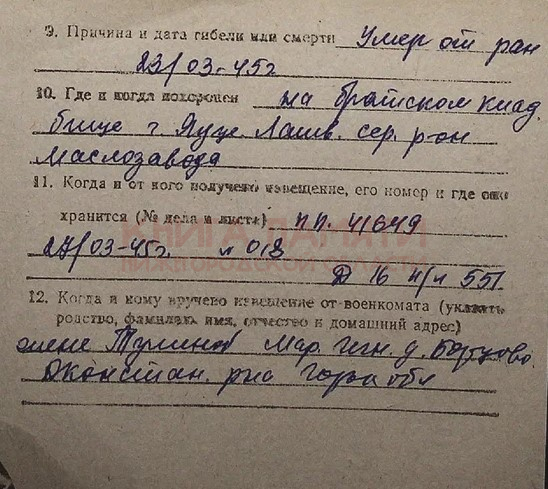 9. Причина и дата гибели или смерти Умер от ран
23/03-45г
10. Где и когда похоронен на братском клад.
бище г. Яуце. Латв. сер. р-он
Маслозавода
11. Когда и от кого получено извещение, его номер и где оно
хранится (№ дела и листа) п.п. 41649
27/03-45г. № 018
Д 16 н/л 551.
12. Когда и кому вручено извещение от военкомата (указать
родство, фамилию имя, отчество и домашний адрес)
жене Мар. Игн. д.
Дконстан. р-на Горьк обл
КНИГА ПАМЯТИ
НИЖЕГОРОДСКОЙ ОБЛАСТИ